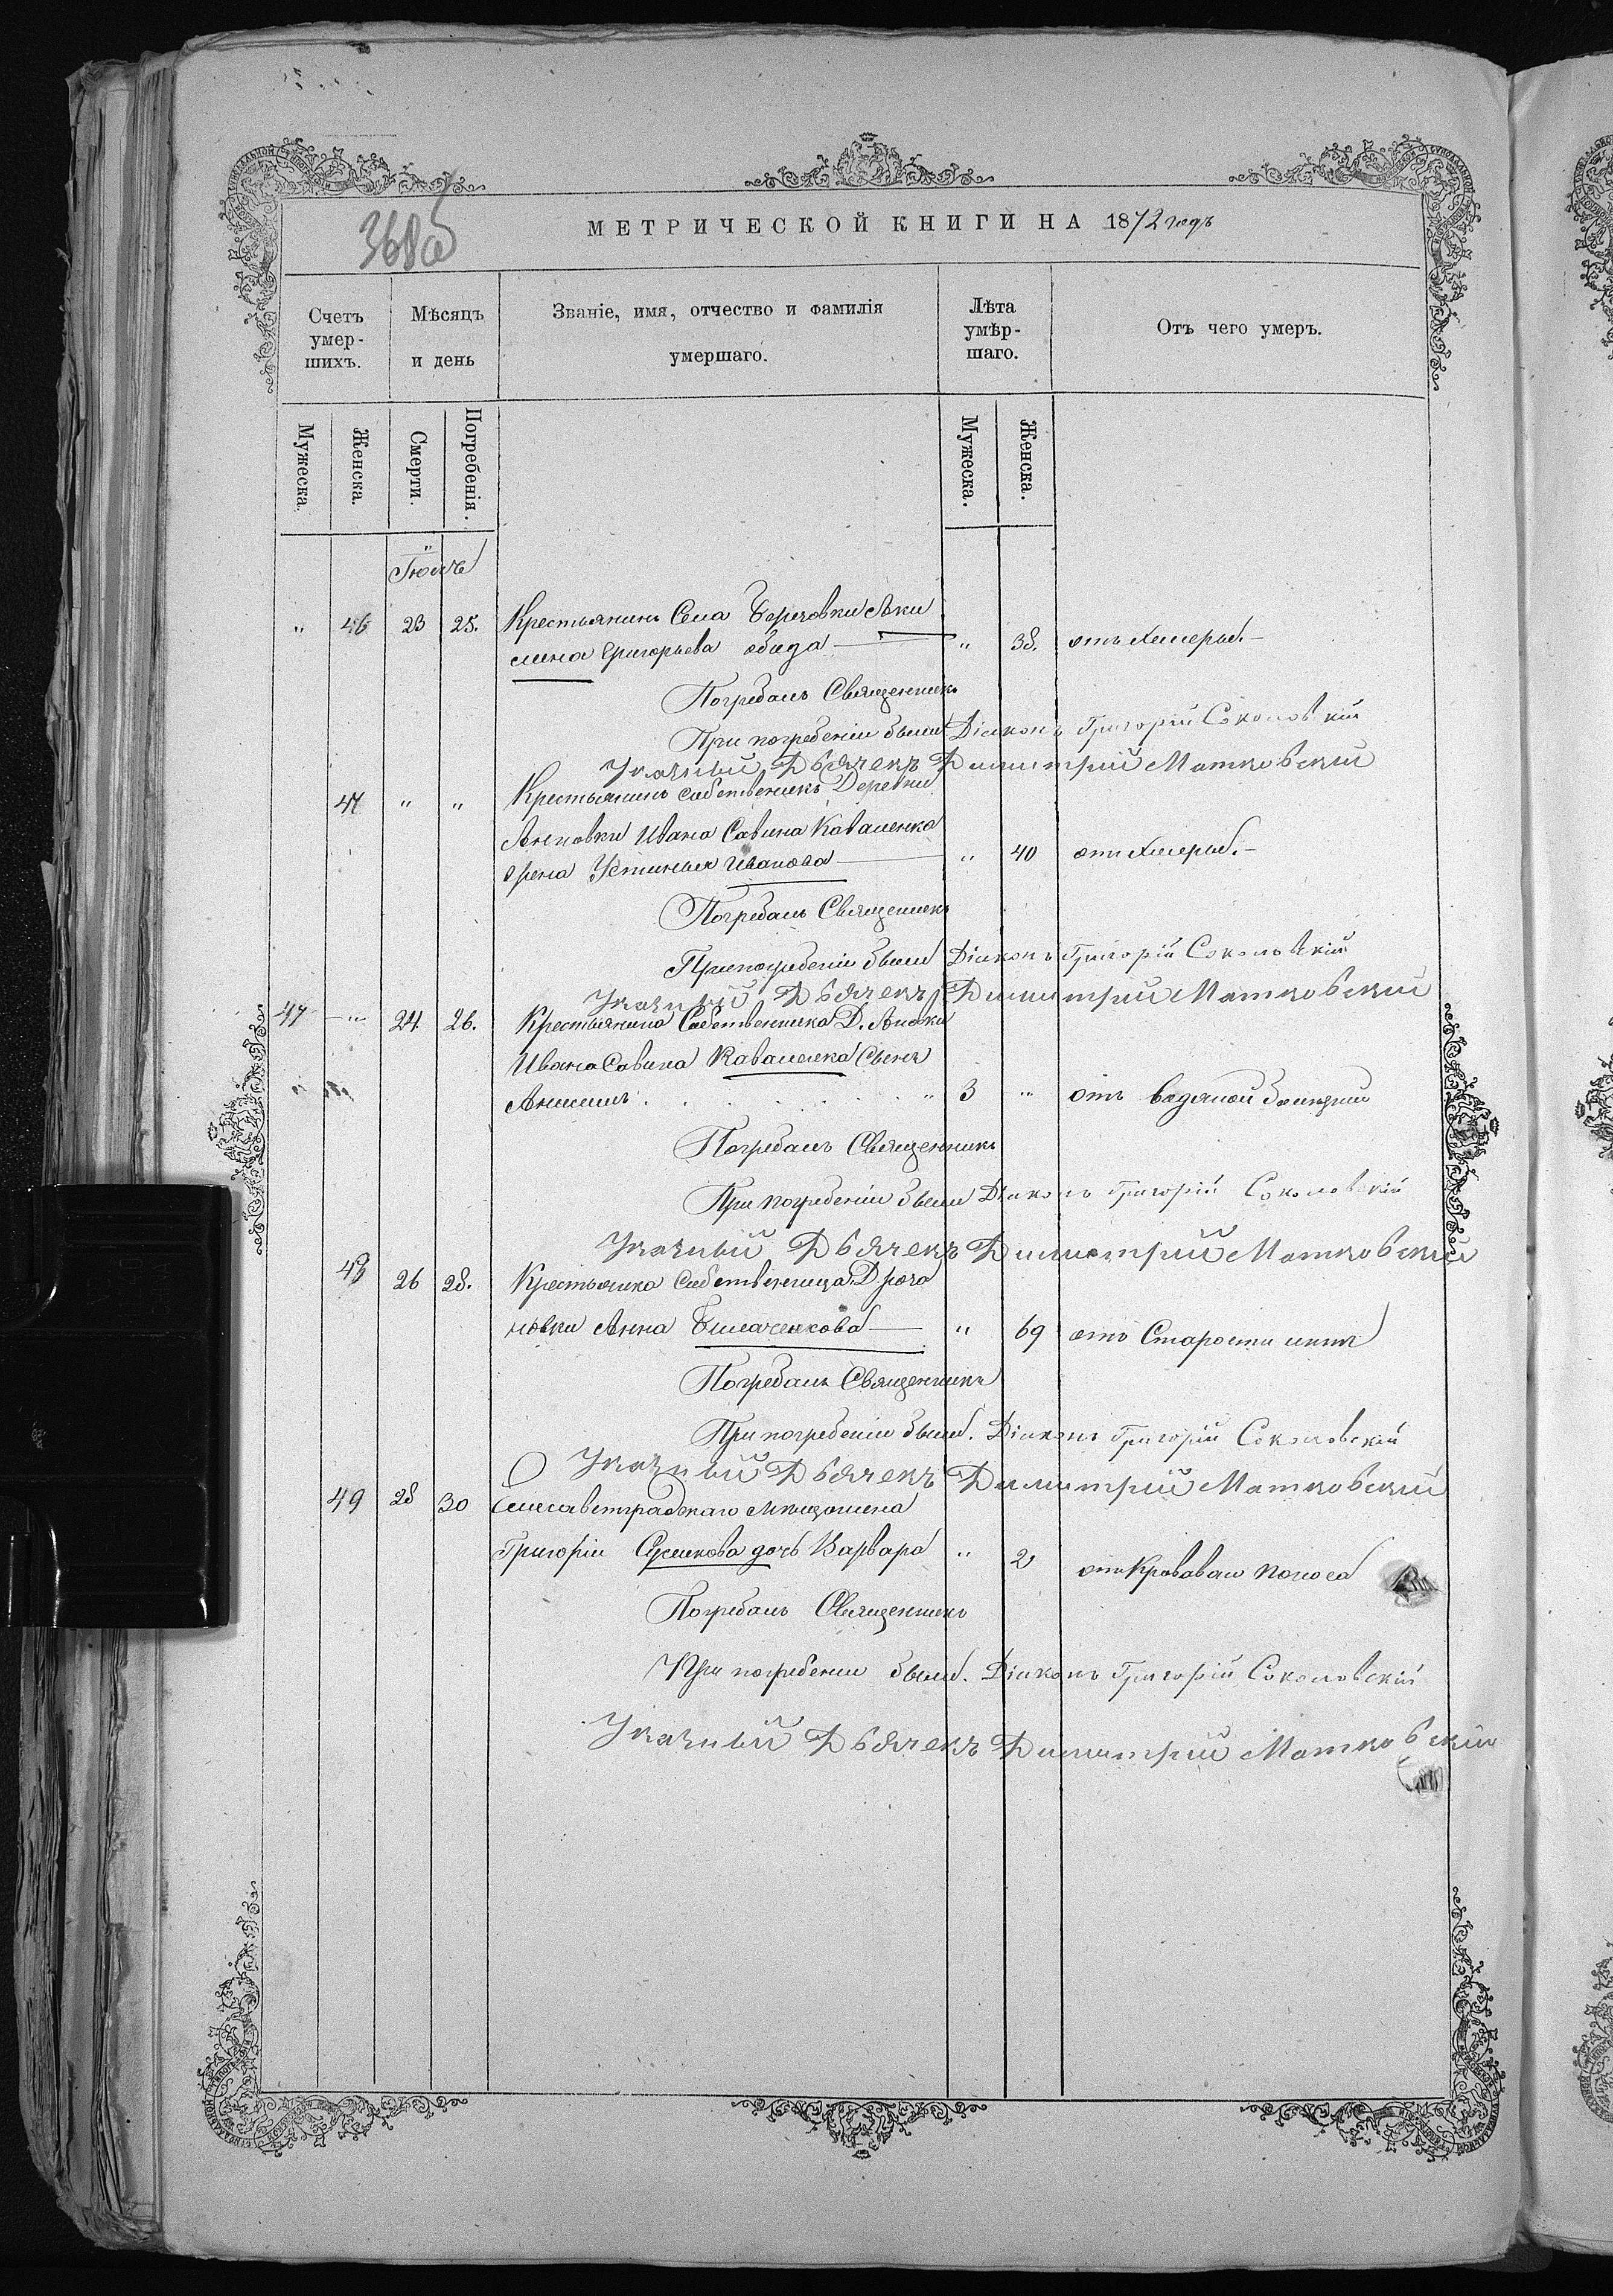 368об
МЕТРИЧЕСКОЙ КНИГИ НА 1872 годъ
Счетъ умер-шихъ.
Мѣсяцъ и день
Званіе, имя, отчество и фамилія умершаго.
Лѣта умѣр-шаго.
Отъ чего умеръ.
Мужеска.
Женска.
Смерти.
Погребенія.
Мужеска.
Женска.
Іюль
" 46 23 25. Крестьянинъ Села
Григорьева " 38. отъ холеры.
Погребалъ Священникъ
При погребеніи были Діаконъ Григорій Соколовскій
Указный Дьячекъ Димитрій Матковскій
47 " " Крестьянинъ собственникъ Деревни
Ивана Савина Коваленка
Устинья Иванова " 40 отъ холеры.
Погребалъ Священникъ
При погребеніи были Діаконъ Григорій Соколовскій
Указный Дьячекъ Димитрій Матковскій
47 " 24 26. Крестьянина Собственника Д.
Ивана Савина Коваленка Сынъ
Анисимъ " 3 " отъ водяной болѣзни
Погребалъ Священникъ
При погребеніи были Діаконъ Григорій Соколовскій
Указный Дьячекъ Димитрій Матковскій
48 26 28. Крестьянка собственница Д
новки Анна " 69 отъ Старости лѣтъ
Погребалъ Священникъ
При погребеніи были. Діаконъ Григорій Соколовскій
Указный Дьячекъ Димитрій Матковскій
49 28 30 Елисаветградскаго мѣщанина
Григорія дочь Варвара " 2 отъ Кроваваго поноса
Погребалъ Священникъ
При погребеніи были. Діаконъ Григорій Соколовскій
Указный Дьячекъ Димитрій Матковскій